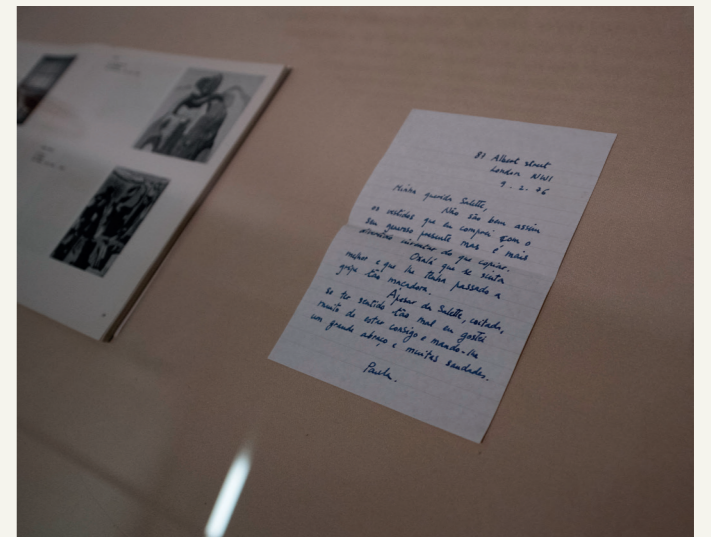 81 Albert street
London NW1
9. 2. 76
Minha querida Salette,
Não são bem assim
os vestidos que eu comprei com o
seu generoso presente mas é mais
divertido inventar do que copiar.
Oxalá que se sinta
melhor e que lhe tenha passado a
gripe tão maçadora.
Apesar da Salette, coitada,
se ter sentido tão mal eu gostei
muito de estar consigo e mando-lhe
um grande abraço e muitas saudades.
Paula.